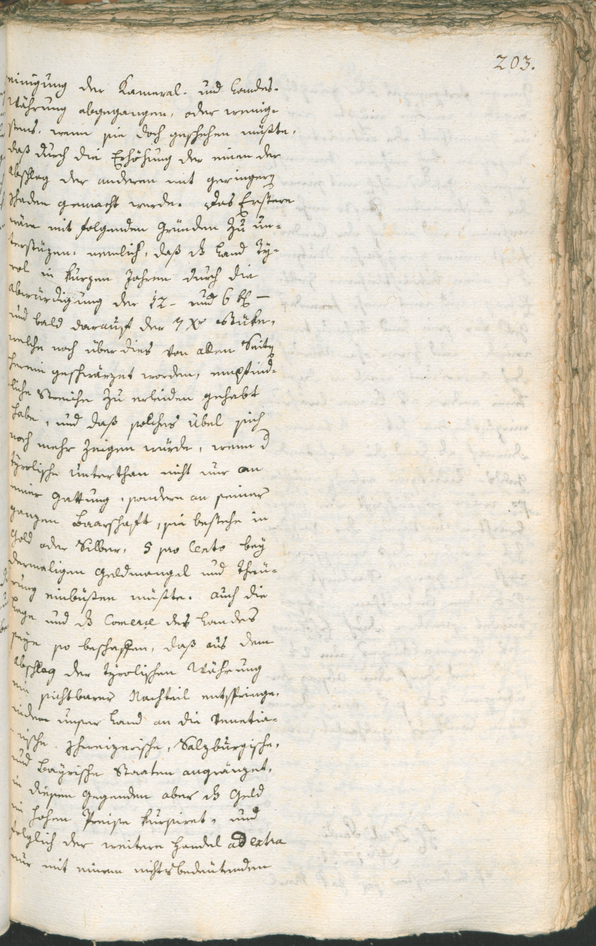 203.
einigung der Kameral- und Landes-
Währung abgegangen, oder wenig-
stens, wenn sie doch geschehen müßte,
daß durch die Erhöhung der einen der
Abschlag der anderen mit geringern
Schaden gemacht werde. Das Erstere
wäre mit folgenden Gründen zu un-
terstüzen, nemlich, daß dz Land Ty-
rol in kurzen Jahren durch die
abwürdigung der 12- und 6 kr
und bald darauf der 7 Xr Stüke,
welche noch über dies von allen Seiten
herein geschwärzet worden, empfind-
liche Streiche zu erleiden gehabt
habe, und daß solches übel sich
noch mehr zeigen würde, wenn d
tyrolische unterthan nicht nur an
einer Gattung, sondern an seiner
ganzen Baarschaft, sie bestehe in
Gold oder Silber, 5 pro Cento bey
dermaligen Geldmangel und Theu-
rung einbüßen müßte. Auch die
Lage und dz Comerze des Landes
seye so beschaffen, daß aus dem
Abschlag der tyrolischen Währung
ein sichtbarer Nachteil entspringe,
indem unser Land an die Venetia-
nische, schweizerische, Salzburgische,
und Bayrische Staaten angränzet,
in diesen Gegenden aber dz Geld
in hohen Preise kursiret, und
folglich der weitere Handel ad extra
nur mit einem nichtsbedeutenden